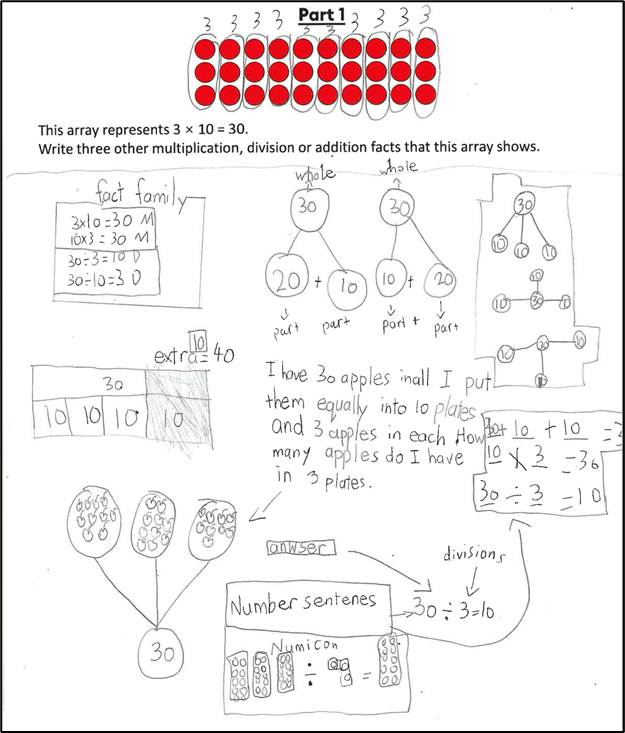 Part 1
3 3 3 3 3 3 3 3 3 3
This array represents 3 × 10 = 30.
Write three other multiplication, division or addition facts that this array shows.
fact family
3×10=30 M
10×3=30 M
30÷3=10 D
30÷10=3 D
whole
30
20 + 10
part part
whole
30
10 + 20
part + part
30
10 10 10
10
10 30 10
10 30 10
10
extra 10 = 40
30
10 10 10 10
I have 30 apples inall I put
them equally into 10 plates
and 3 apples in each How
many apples do I have
in 3 plates.
10 + 10 + 10 = 3
10 × 3 = 30
30 ÷ 3 = 10
30
anwser
divisions
30÷3=10
Number sentenes
Numicon
÷ =